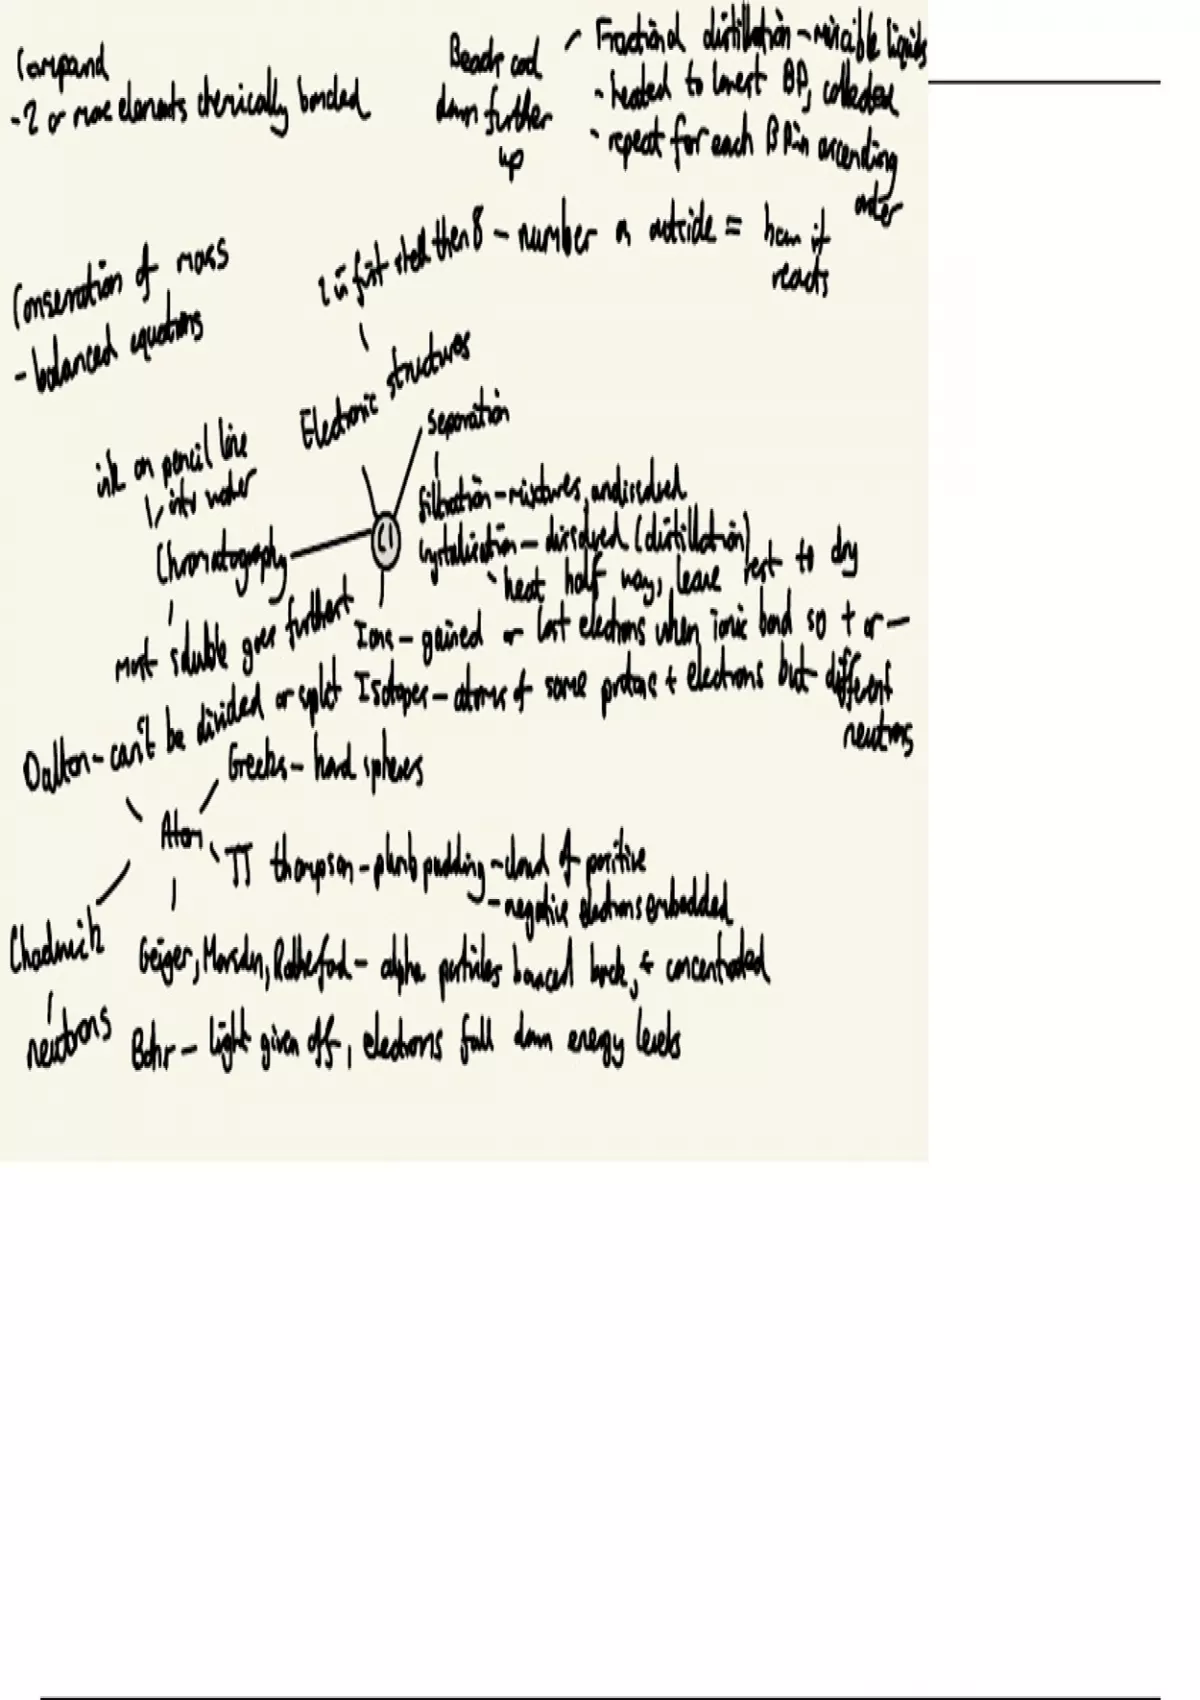 Compound
- 2 or more elements chemically bonded
Beads cool
down further
up
Fractional distillation - miscible liquids
- heated to lowest BP, collected
- repeat for each BP in ascending
order
2 in first shell then 8 - number on outside = how it
reacts
Conservation of mass
- balanced equations
Electronic structures
separation
ink on pencil line
into water
Chromatography
C1
filtration - mixtures, undissolved
crystalisation - dissolved (distillation)
heat half way, leave rest to dry
most soluble goes furthest
Ions - gained or lost electrons when ionic bond so + or -
Isotopes - atoms of same protons + electrons but different
neutrons
Dalton - can't be divided or split
Greeks - hard spheres
Atom
JJ thompson - plumb pudding - cloud of positive
- negative electrons embedded
Chadwick
neutrons
Geiger, Marsden, Rutherford - alpha particles bounced back, + concentrated
Bohr - light given off, electrons fall down energy levels